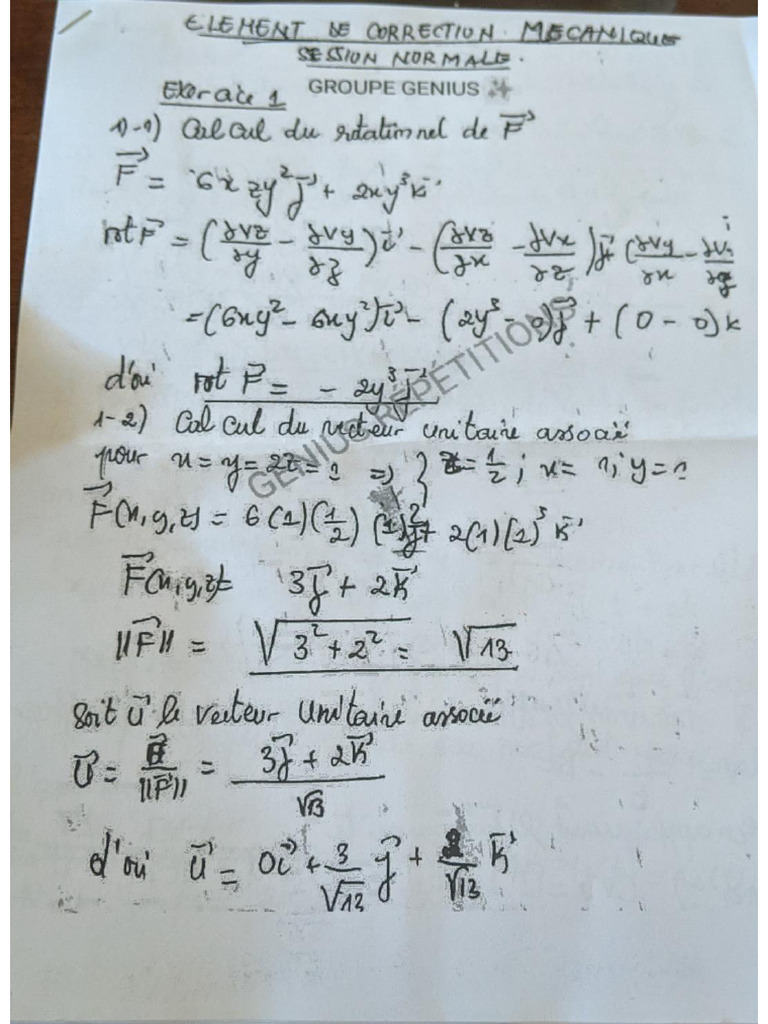 ELEMENT DE CORRECTION MECANIQUE
SESSION NORMALE.
GROUPE GENIUS
Exercice 1
1)-1) Calcul du rotationnel de F⃗
F⃗ = 6x zy² j⃗ + 2xy³ k⃗
rot F⃗ = (∂Vz/∂y - ∂Vy/∂z) i⃗ - (∂Vz/∂x - ∂Vx/∂z) j⃗ + (∂Vy/∂x - ∂Vx/∂y
= (6xy² - 6xy²) i⃗ - (2y³ - 0) j⃗ + (0 - 0) k
d'où rot F⃗ = - 2y³ j⃗
1-2) Calcul du vecteur unitaire associé
pour x = y = 2z = 1 => } z = 1/2 ; x = 1 ; y = 1
F⃗(x,y,z) = 6(1)(1/2)(1)² j⃗ + 2(1)(1)³ k⃗
F⃗(x,y,z) = 3j⃗ + 2k⃗
||F⃗|| = √(3² + 2²) = √13
Soit u⃗ le vecteur unitaire associé
U⃗ = F⃗/||F⃗|| = (3j⃗ + 2k⃗)/√13
d'où u⃗ = 0i⃗ + 3/√13 j⃗ + 2/√13 k⃗
GENIUS RÉPÉTITIONS